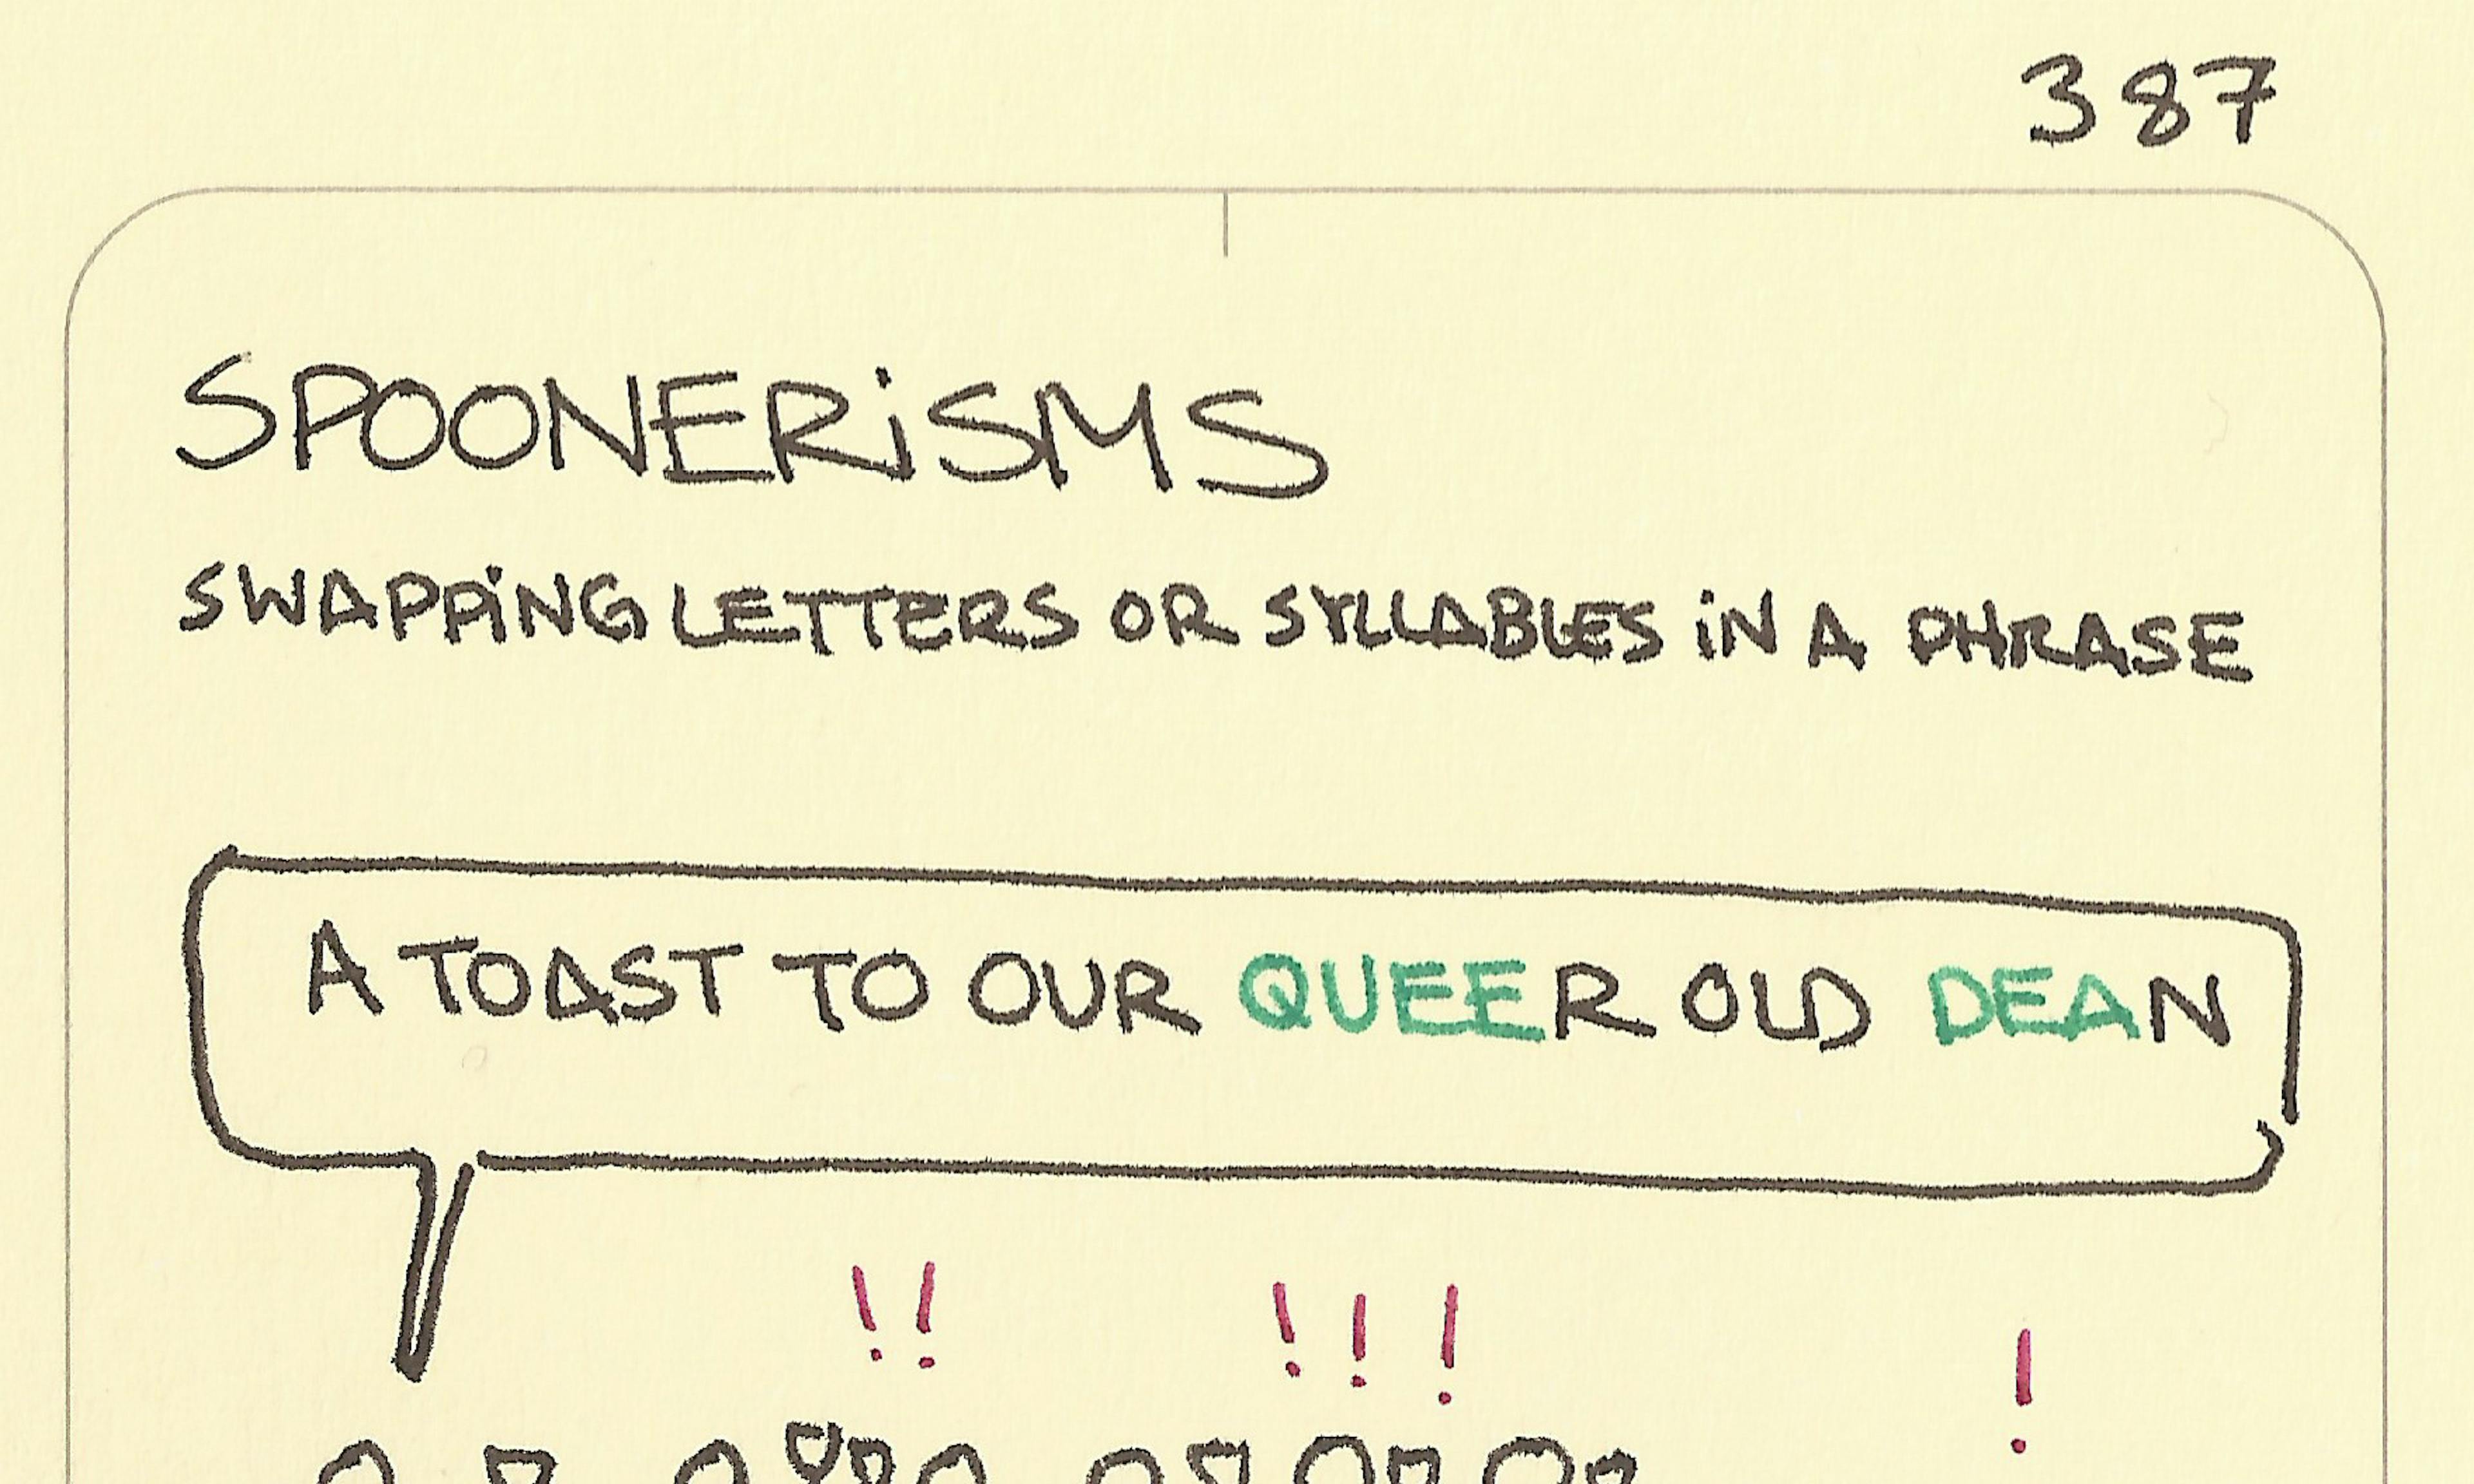 387
SPOONERiSMS
SWAPPiNG LETTERS OR SYLLABLES iN A PHRASE
A TOAST TO OUR QUEER OLD DEAN
!! !!! !